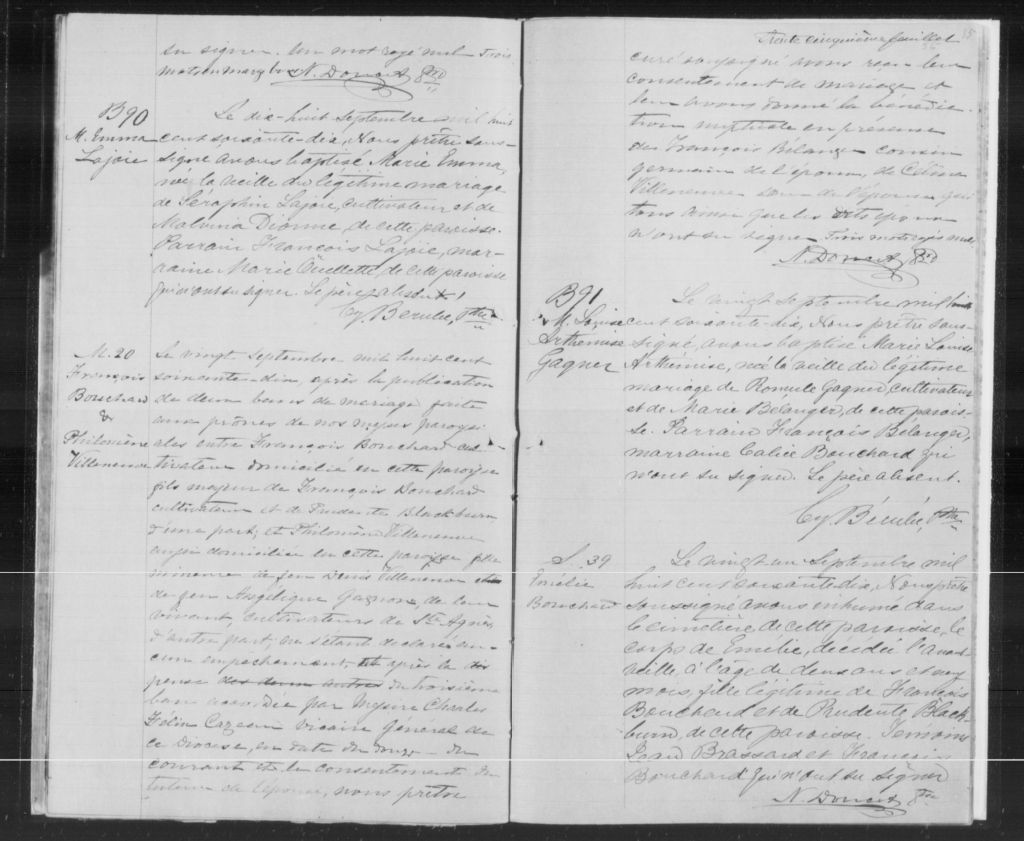 su signer. Un mot rayé nul. Trois
mots en marge bons N. Doucet Ptre
B90
M. Emma
Lajoie
Le dix-huit Septembre mil huit
cent soixante-dix, Nous prêtre sous-
signé avons baptisé Marie Emma,
née la veille du légitime mariage
de Séraphin Lajoie, cultivateur et de
Malvina Dionne, de cette paroisse.
Parrain François Lajoie, mar-
raine Marie Ouellette, de cette paroisse
qui n'ont su signer. Le père absent.
Ptre
M. 20
François
Bouchard
&
Philomène
Villeneuve
Le vingt Septembre mil huit cent
soixante-dix, après la publication
de deux bans de mariage faite
aux prônes de nos messes parois-
siales entre François Bouchard cul-
tivateur domicilié en cette paroisse
fils majeur de François Bouchard
cultivateur et de Prudente Blackburn
d'une part; et Philomène Villeneuve
aussi domiciliée en cette paroisse fille
mineure de feu Denis Villeneuve
de feu Angélique Gagnon, de leur
vivant, cultivateurs de Ste Agnès
d'autre part; ne s'étant déclaré au-
cun empêchement, après la dis
pense des deux autres du troisième
ban accordée par Messire Charles
Félix Cazeau Vicaire Général de
ce Diocèse, en date du onze du
courant et le consentement du
tuteur de l'épouse, nous prêtre
Trente cinquième feuillet
curé soussigné avons reçu leur
consentement de mariage et
leur avons donné la bénédic-
tion nuptiale en présence
de François Belanger cousin
germain de l'époux, de Célina
Villeneuve sœur de l'épouse qui
tous ainsi que les dits époux
n'ont su signer. Trois mots rayés nuls.
N. Doucet Ptre
B91
M. Louise
Arthémise
Gagner
Le vingt Septembre mil huit
cent soixante-dix, Nous prêtre sous-
signé, avons baptisé Marie Louise
Arthémise, née la veille du légitime
mariage de Romule Gagner, cultivateur
et de Marie Bélanger, de cette parois-
se. Parrain François Bélanger,
marraine Calice Bouchard qui
n'ont su signer. Le père absent.
Ptre
S. 39
Emélie
Bouchard
Le vingt un Septembre mil
huit cent soixante-dix, Nous prêtre
soussigné avons inhumé dans
le cimetière de cette paroisse, le
corps de Emélie, décédée l'avant
veille, à l'âge de deux ans et
mois, fille légitime de François
Bouchard et de Prudente Black-
burn de cette paroisse. Témoins
Jean Brassard et François
Bouchard qui n'ont su signer
N. Doucet Ptre